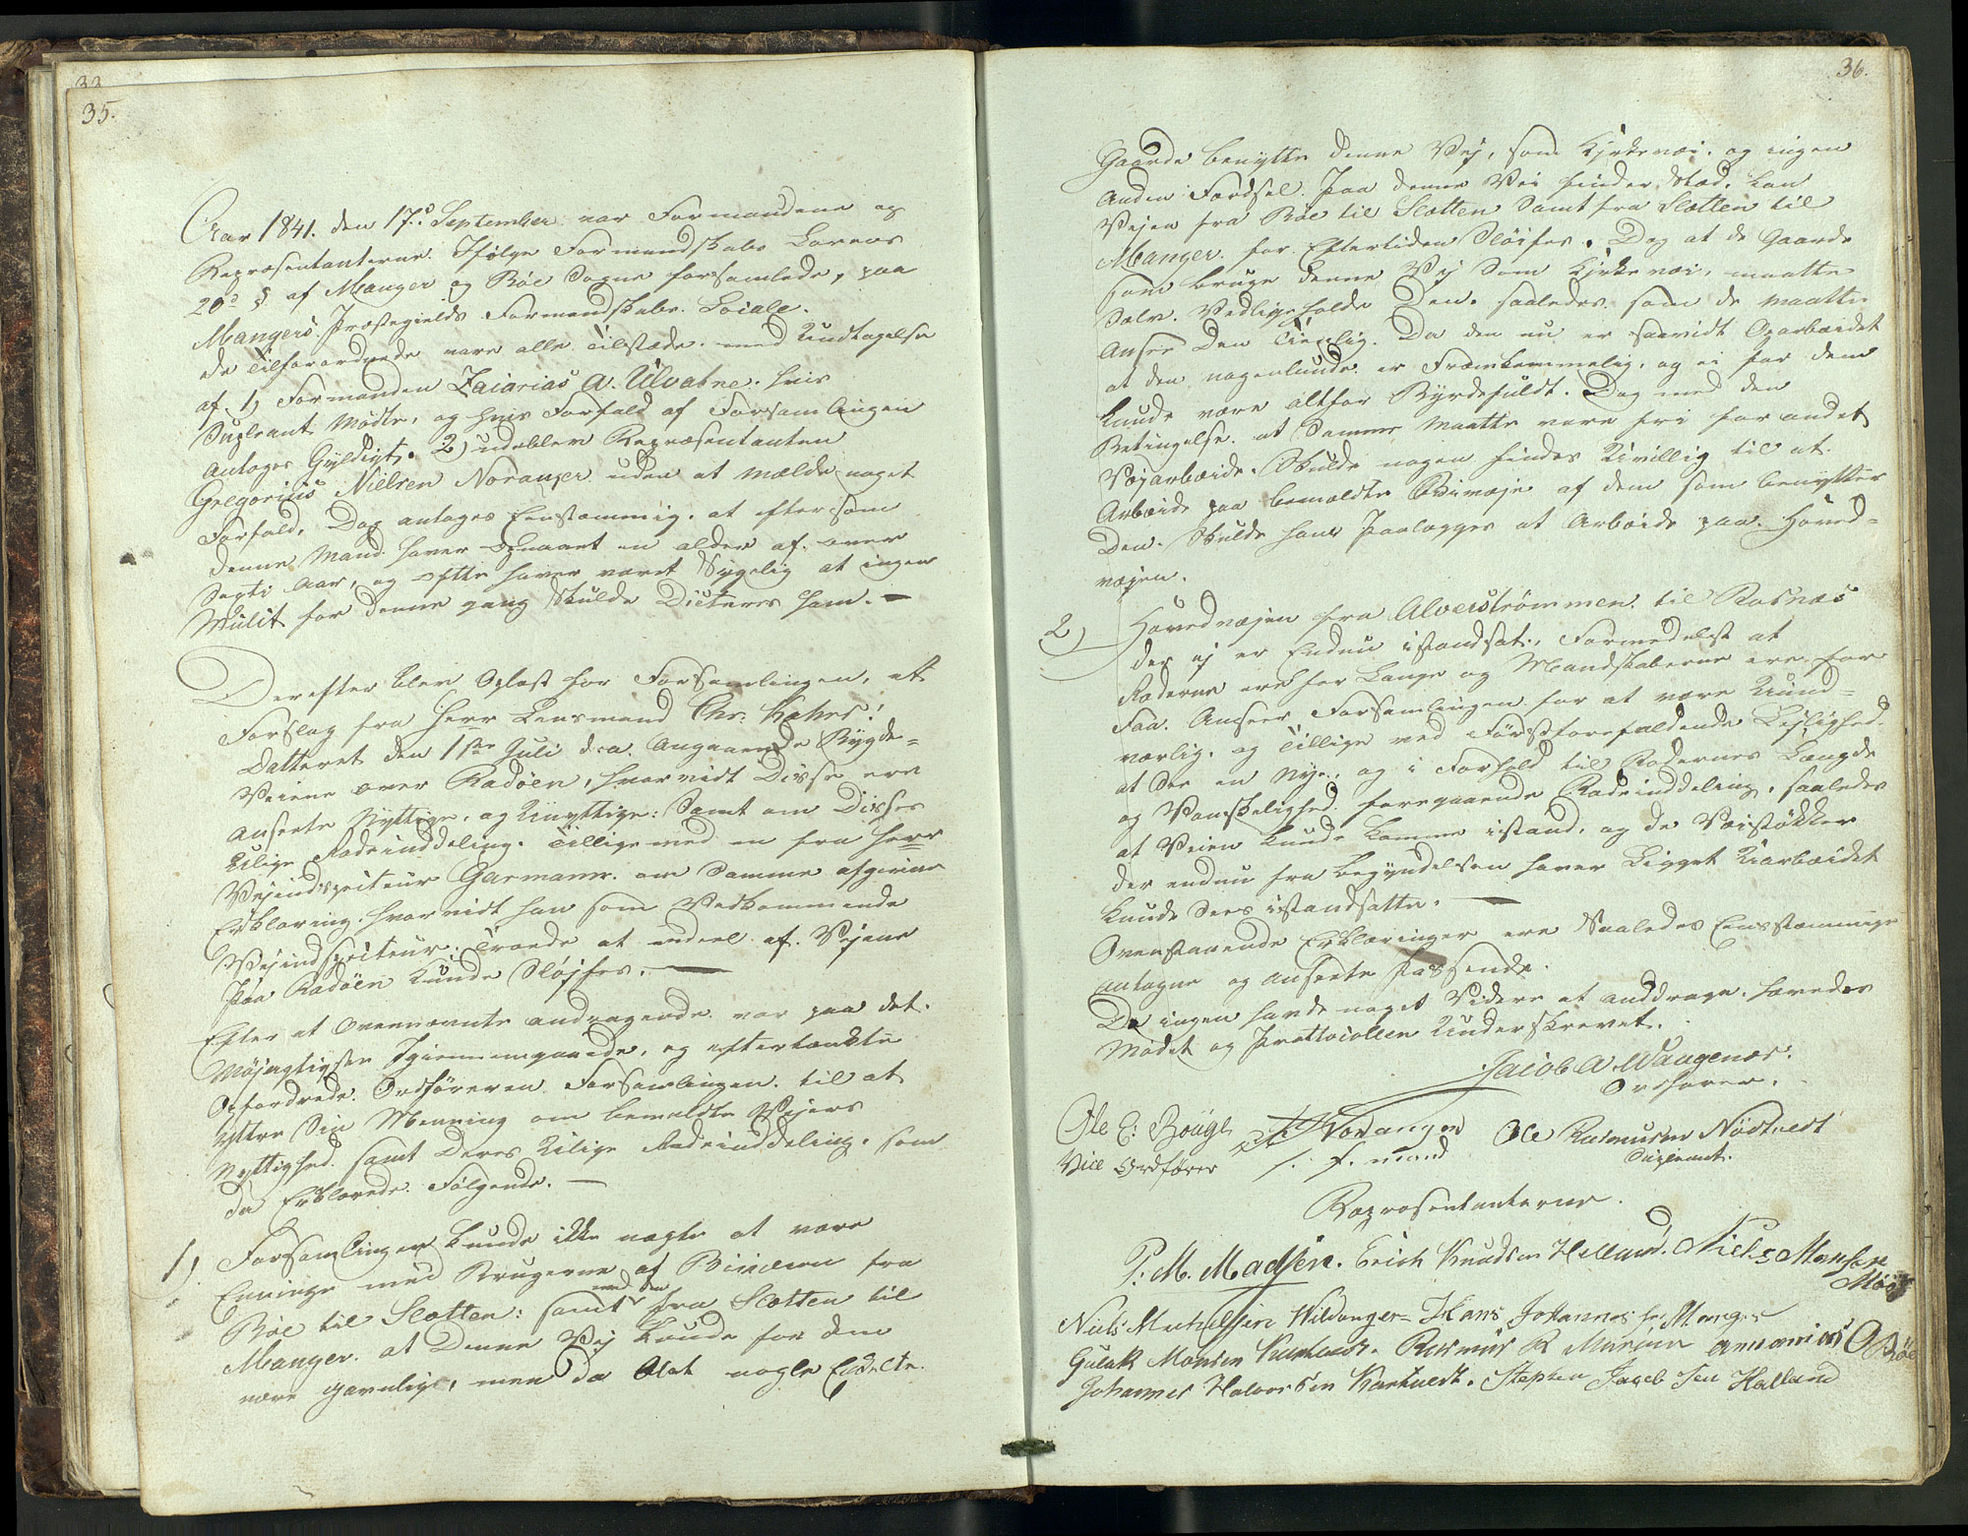 33
35.
Aar 1841. den 17de September var Formændene og
Repræsentanterne Ifølge Formandskabs Lovens
20de § af Manger og Bøe Sogne forsamlede, paa
Mangers Præstegields Formandskabs Locale.
De Tilforordnede vare alle Tilstæde med Undtagelse
af 1) Formanden Zacarias A. Ulvatne. hvis
Supleant Mødte, og hvis Forfald af Forsamlingen
antoges Gyldigt. 2) udeblev Repræsentanten
Gregorius Nielsen Noranger uden at mælde noget
Forfald. Dog antoges Eenstemmig, at eftersom
denne Mand haver opnaaet en alder af over
Sexti aar, og ofte haver været Sygelig at ingen
Mulct for denne gang skulde Dicteres ham. —
Derefter blev Oplæst for Forsamlingen, et
Forslag fra Herr Lensmand Chr. Kahrs!
Datteret den 1ste Juli d. a. Angaaende Bygde=
Veiene over Radøen, hvorvidt Disse ere
anseete Nyttige, og Unyttige: Samt om Disses
Lilige Rodeinddeling. Tillige med en fra Herr
Vejindspecteur Garmann. om Samme afgiven
Erklæring, hvorvidt han som Vedkommende
Vejindspecteur, Troede at endeel af Vejene
paa Radøen kunde Sløjfes. —
Efter at Ovennævnte andragende var paa det
Nøjagtigste Igiennemgaaede, og eftertænkte
Opfordrede Ordføreren Forsamlingen til at
yttre Sin Mening om bemeldte Vejers
Nyttighed samt Deres Lilige Rodeinddeling, som
da Erklærede Følgende. —
1) Forsamlingen kunde ikke nægte at være
Eenige med Brugerne af Biveien fra
Bøe til Sletten: samt ved den fra Sletten til
Manger. at Denne Vej kunde for dem
være gavnlig, men da Blot nogle Enkelte
36.
Gaarde benytte denne Vej, som Kirkevei, og ingen
anden Færdsel paa denne Vei finder Sted, kan
Vejen fra Bøe til Sletten Samt fra Sletten til
Manger for Eftertiden Sløifes. Dog at de Gaarde
som bruge denne Vej Som Kirkevei, maatte
Selv Vedligeholde Den. saaledes som de maatte
Ansee Den Tienlig. Da den nu er saavidt Oparbeidet
at den nogenlunde er Fremkommelig, og ei for dem
kunde være altfor Byrdefuldt. Dog med den
Betingelse at Samme maatte være fri for andet
Vejarbeide. Skulde nogen findes Uvillig til at
Arbeide paa bemeldte Biveje af dem som benytter
Den. Skulde ham Paalægges at Arbeide paa Hoved=
vejen.
2) Hovedvejen fra Alverstrømmen til Rosnæs
der ej er Endnu istandsat, Formedelst at
Roderne ere for Lange og Mandskaberne ere for
Faa. Anseer Forsamlingen for at være Nund=
værlig, og Tillige ved Førstforefaldende Leilighed
at See en nye, og i Forhold til Rodernes Længde
og Vanskelighed foregaaende Rodeinddeling, saaledes
at Veien kunde komme istand, og de Veistøkker
der endnu fra begyndelsen haver Ligget Uarbeidet
kunde Sees istandsatte. —
Ovenstaaende Erklæringer ere Saaledes Eensstemmige
antagne og ansete passende.
Da ingen havde noget Videre at anddrage, hævedes
Mødet og Prottocollen Underskrevet.
Jacob A Waagenæs.
Ordfører.
Ole E: Bouge Noranger Ole Rasmusen Nøstvedt
Vice Ordfører f. mand Supleant.
Repræsentanterne.
P. M. Madsen. Erich Knudsen Helland. Niels Monsen
Niels Michelsen Wildanger Hans Johannessen Manger
Gulak Monsen Rasmus R
Johannes Halvorsen Kartvedt. Stephen Jacobsen Halland